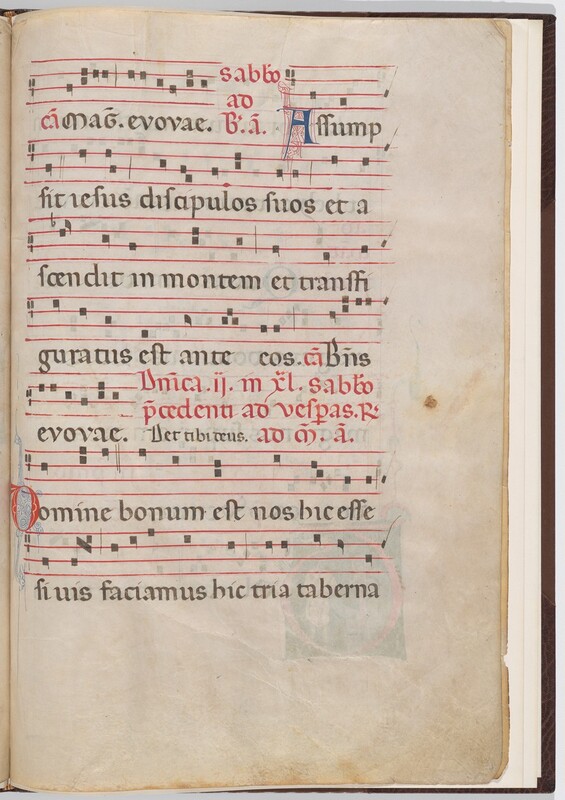 sabbo
ad
cā MaG. evovae. B. ā. Assump
sit iesus discipulos suos et a
scendit in montem et transfi
guratus est ante eos. cā Bn̄s
Dn̄ica. ij. in xl. sabbo
p̄cedenti ad vesp̄as. R
evovae. Det tibi deus. ad m̄. ā.
Domine bonum est nos hic esse
si uis faciamus hic tria taberna